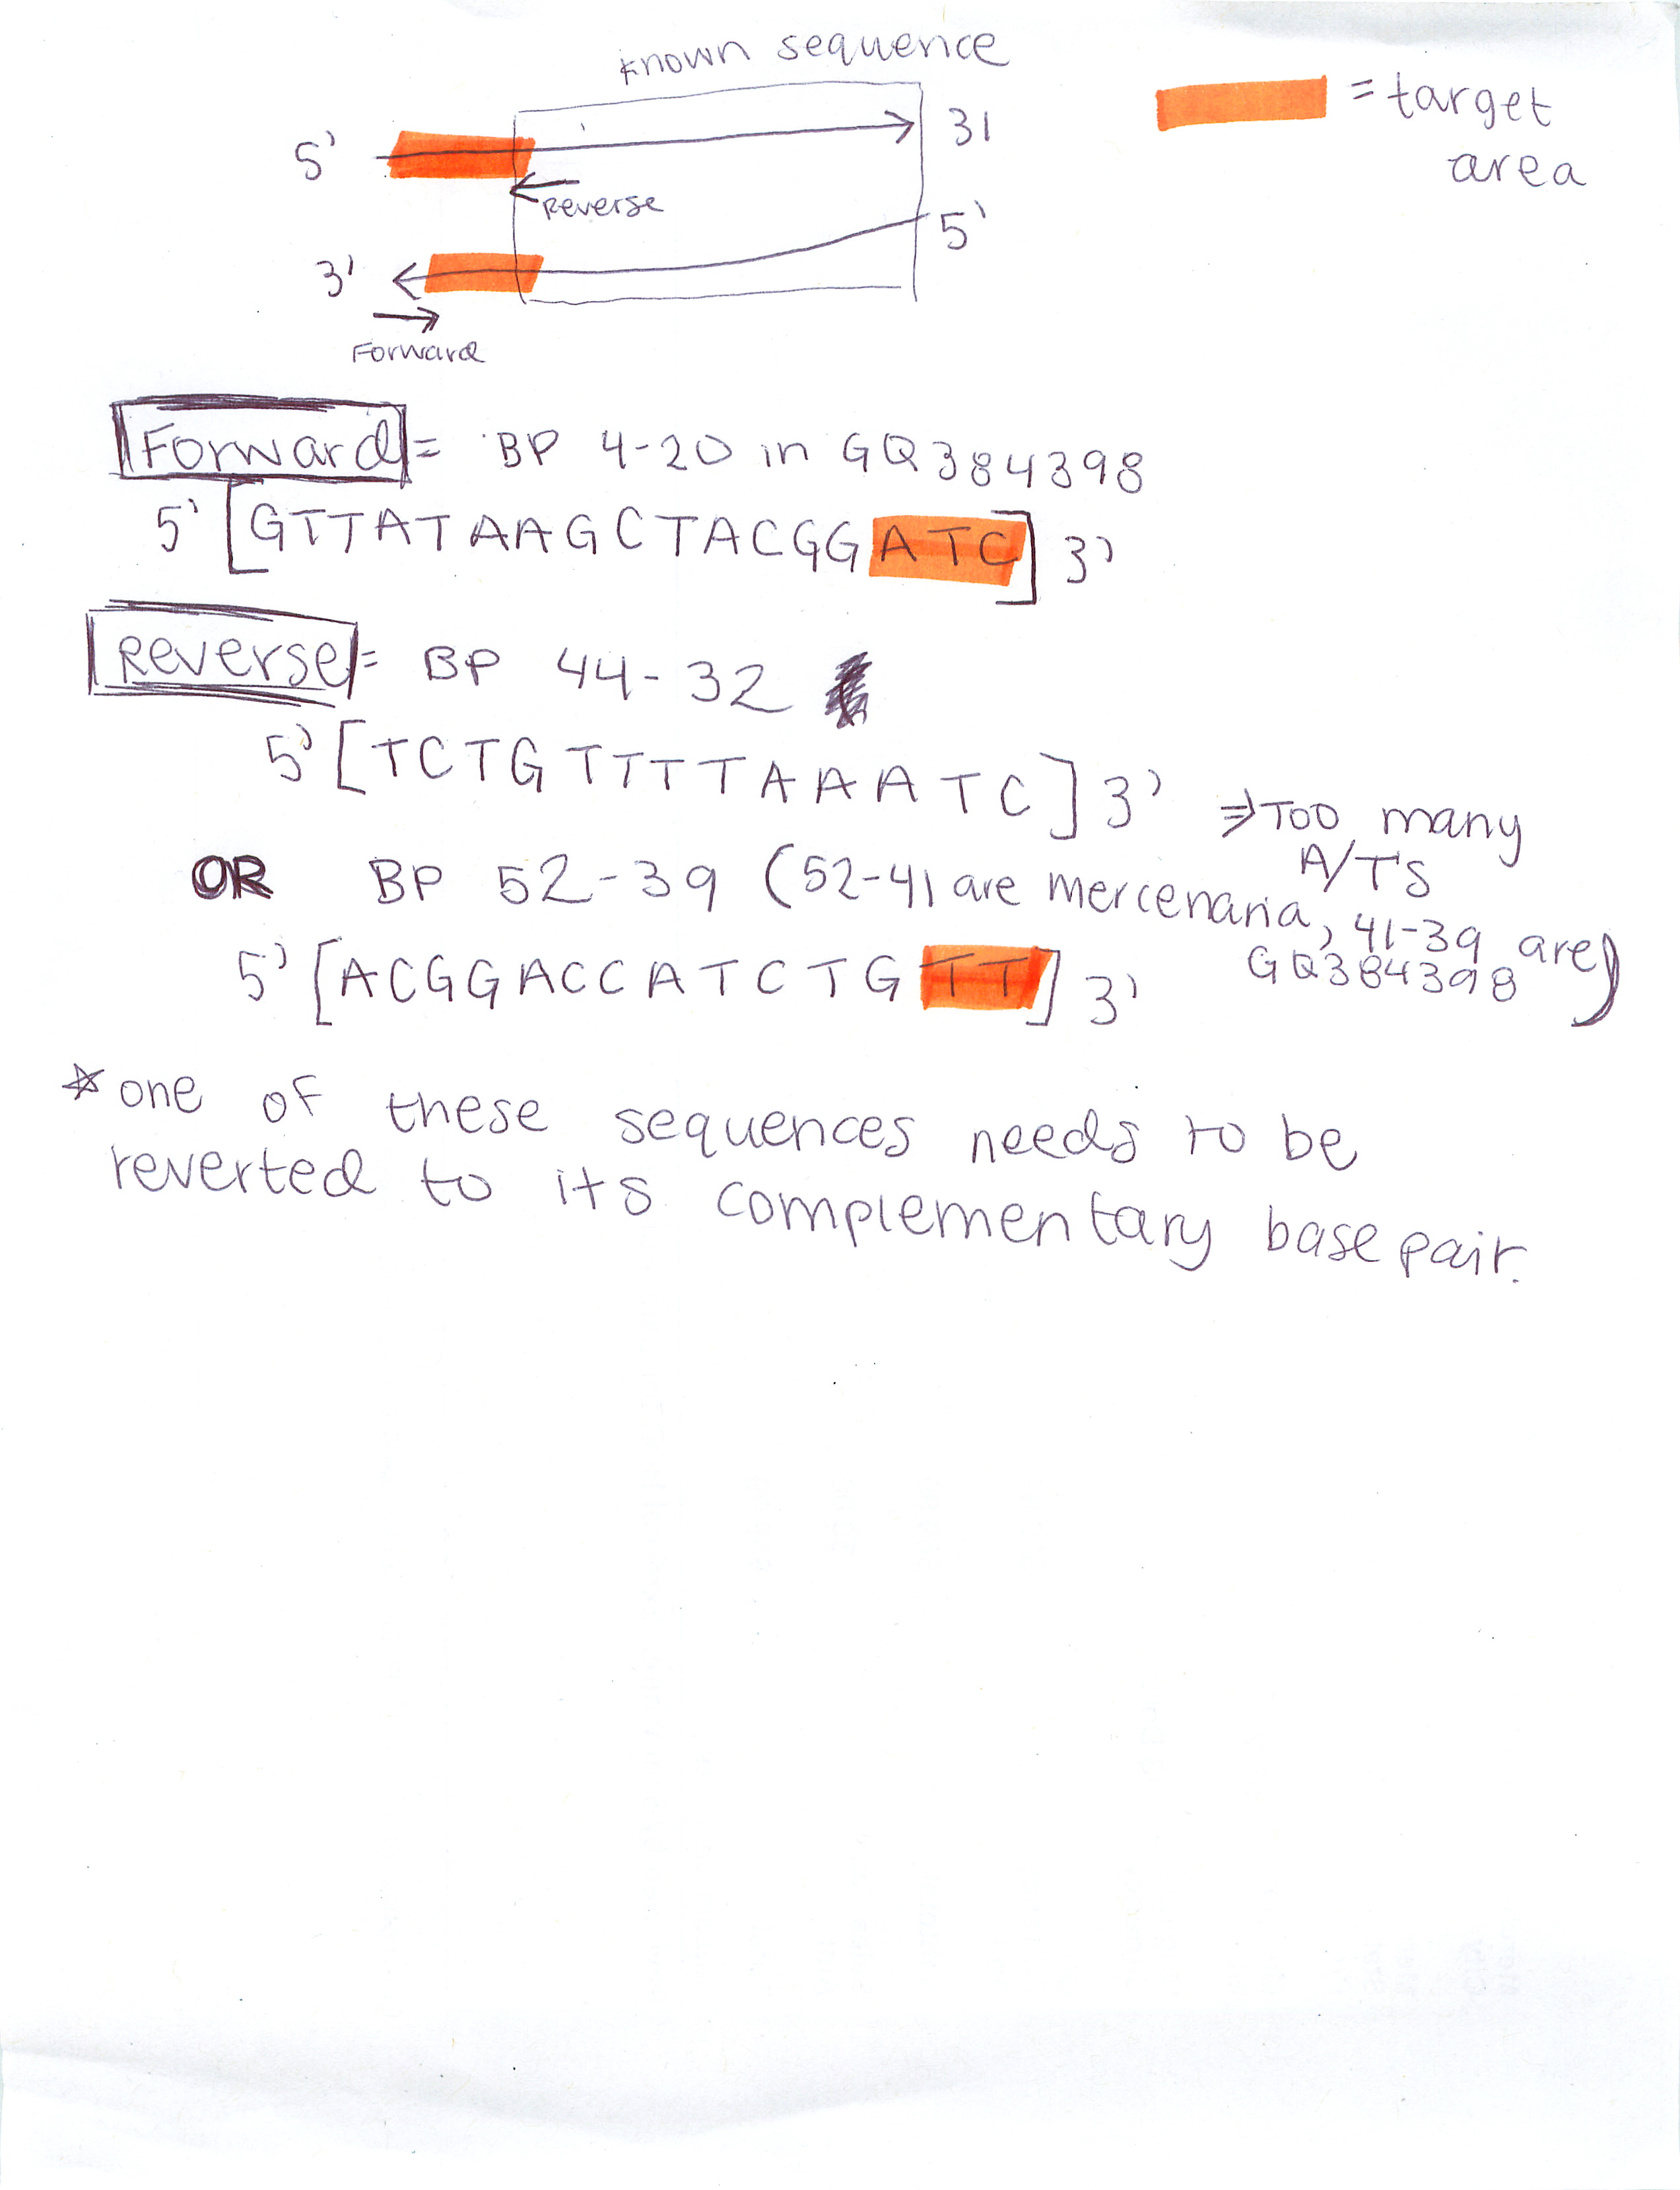 Known sequence
= target
area
5' 3'
Reverse
5'
3'
Forward
Forward = BP 4-20 in GQ384398
5' [GTTATAAGCTACGGATC] 3'
Reverse = BP 44-32
5' [TCTGTTTTAAATC] 3' ⇒ Too many
A/TS
OR BP 52-39 (52-41 are mercenaria, 41-39 are
GQ384398)
5' [ACGGACCATCTGTT] 3'
* one of these sequences needs to be
reverted to its complementary base pair.